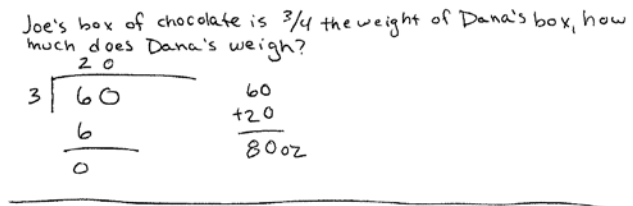 Joe's box of chocolate is 3/4 the weight of Dana's box, how
much does Dana's weigh?
20
3 60
6
0
60
+20
80oz